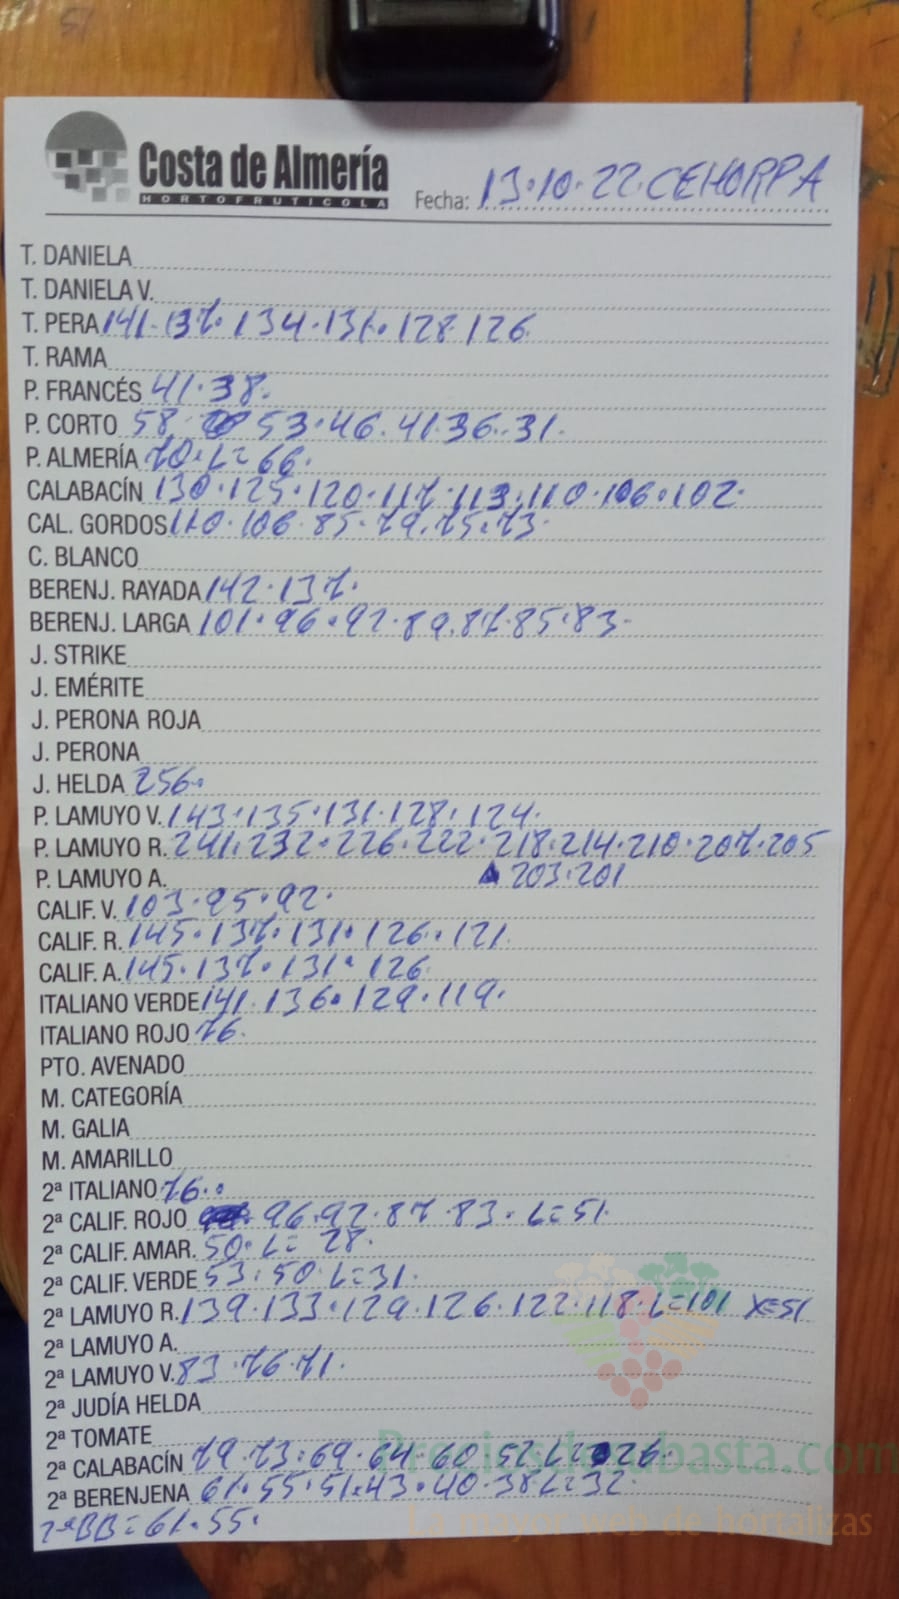 Costa de Almería
HORTOFRUTICOLA
Fecha: 13.10.22 CEHORPA
T. DANIELA
T. DANIELA V.
T. PERA 141.137.134.131.128.126.
T. RAMA
P. FRANCÉS 41.38.
P. CORTO 58. 53.46.41.36.31.
P. ALMERÍA 70.L=66.
CALABACÍN 130.125.120.117.113.110.106.102.
CAL. GORDOS 110.106.85.79.75.73.
C. BLANCO
BERENJ. RAYADA 142.137.
BERENJ. LARGA 101.96.92.89.87.85.83.
J. STRIKE
J. EMÉRITE
J. PERONA ROJA
J. PERONA
J. HELDA 256.
P. LAMUYO V. 143.135.131.128.124.
P. LAMUYO R. 241.232.226.222.218.214.210.207.205
P. LAMUYO A. 203.201
CALIF. V. 103.95.92.
CALIF. R. 145.137.131.126.121.
CALIF. A. 145.137.131.126
ITALIANO VERDE 141.136.129.119.
ITALIANO ROJO 76.
PTO. AVENADO
M. CATEGORÍA
M. GALIA
M. AMARILLO
2ª ITALIANO 76.
2ª CALIF. ROJO 96.92.87.83.L=51.
2ª CALIF. AMAR. 50.L=28.
2ª CALIF. VERDE 53.50.L=31.
2ª LAMUYO R. 139.133.129.126.122.118.L=101 X=51
2ª LAMUYO A.
2ª LAMUYO V. 83.76.71.
2ª JUDÍA HELDA
2ª TOMATE
2ª CALABACÍN 79.73.69.64.60.52.L=26.
2ª BERENJENA 61.55.51.43.40.38.L=32.
2ªBB=61.55.
Preciosdesubasta.com
La mayor web de hortalizas